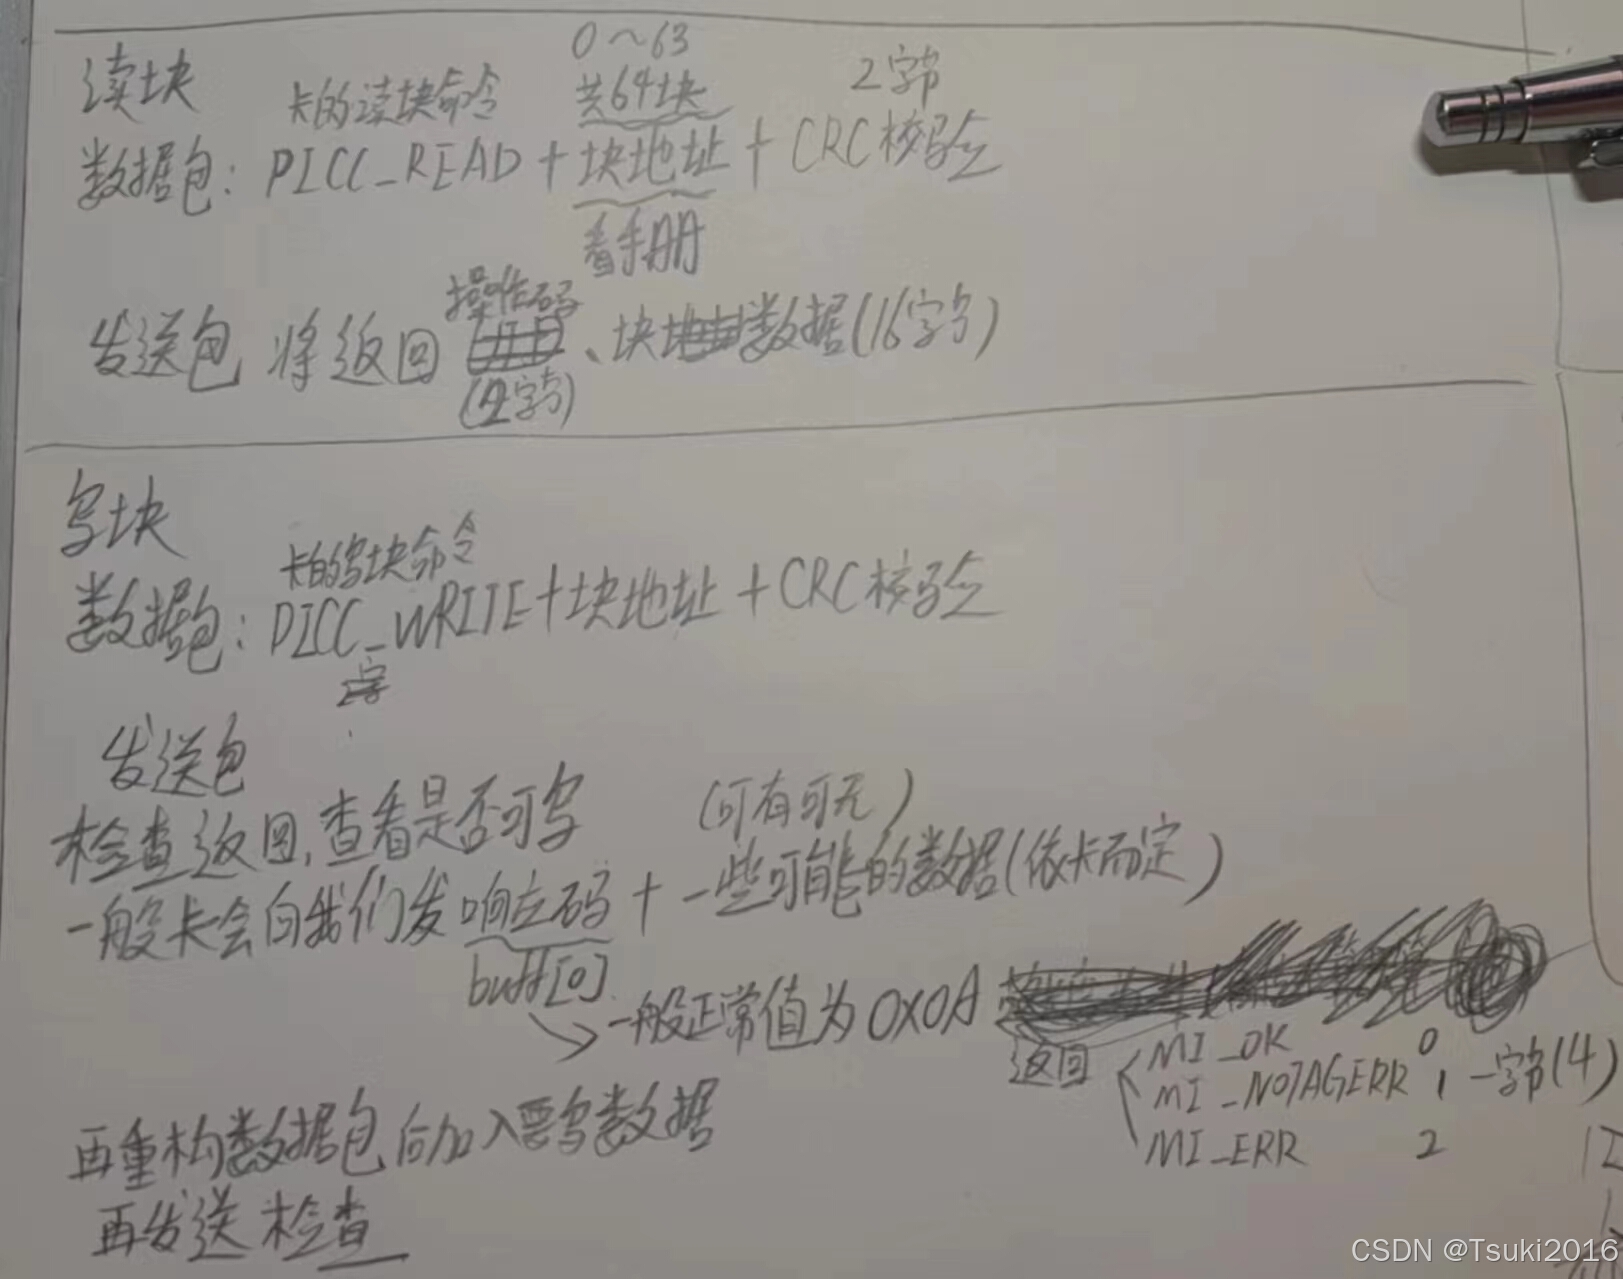 0~63
读块
卡的读块命令 共64块 2字节
数据包: PICC_READ + 块地址 + CRC校验
看手册
操作码
发送包 将返回 、块数据(16字节)
字节)
写块
卡的写块命令
数据包: PICC_WRITE+块地址 + CRC校验
发送包
检查返回,查看是否可写 (可有可无)
一般卡会向我们发响应码 + 一些可能的数据(依卡而定)
buff[0]
一般正常值为0X0A
返回 MI_OK 0
MI_NOTAGERR 1 一字节(4)
MI_ERR 2
再重构数据包向加入要写数据
再发送 检查
CSDN @Tsuki2016